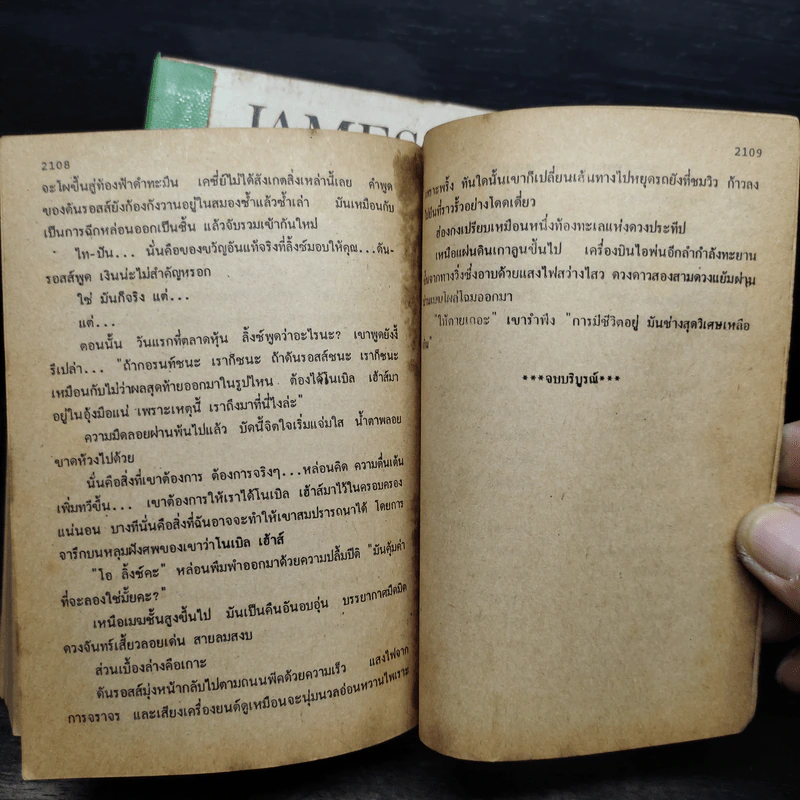 JAMES
2108
จะโผขึ้นสู่ท้องฟ้าดำทะมึน เคซี่ย์ไม่ได้สังเกตสิ่งเหล่านี้เลย คำพูด
ของดันรอสส์ยังก้องกังวานอยู่ในสมองซ้ำแล้วซ้ำเล่า มันเหมือนกับ
เป็นการฉีกหล่อนออกเป็นชิ้น แล้วจับรวมเข้ากันใหม่
ไท-ปัน... นั่นคือของขวัญอันแท้จริงที่ลิ้งซ์มอบให้คุณ...ดัน-
รอสส์พูด เงินน่ะไม่สำคัญหรอก
ใช่ มันก็จริง แต่...
แต่...
ตอนนั้น วันแรกที่ตลาดหุ้น ลิ้งซ์พูดว่าอะไรนะ? เขาพูดยังงี้
รึเปล่า... "ถ้ากอรนท์ชนะ เราก็ชนะ ถ้าดันรอสส์ชนะ เราก็ชนะ
เหมือนกับไม่ว่าผลสุดท้ายออกมาในรูปไหน ต้องได้โนเบิล เฮ้าส์มา
อยู่ในอุ้งมือแน่ เพราะเหตุนี้ เราถึงมาที่นี่ไงล่ะ"
ความมืดลอยผ่านพ้นไปแล้ว บัดนี้จิตใจเริ่มแจ่มใส น้ำตาพลอย
ขาดห้วงไปด้วย
นั่นคือสิ่งที่เขาต้องการ ต้องการจริงๆ...หล่อนคิด ความตื่นเต้น
เพิ่มทวีขึ้น... เขาต้องการให้เราได้โนเบิล เฮ้าส์มาไว้ในครอบครอง
แน่นอน บางทีนั่นคือสิ่งที่ฉันอาจจะทำให้เขาสมปรารถนาได้ โดยการ
จารึกบนหลุมฝังศพของเขาว่าโนเบิล เฮ้าส์
"โอ ลิ้งซ์คะ" หล่อนพึมพำออกมาด้วยความปลื้มปิติ "มันคุ้มค่า
ที่จะลองใช่มั้ยคะ?"
เหนือเมฆชั้นสูงขึ้นไป มันเป็นคืนอันอบอุ่น บรรยากาศมืดมิด
ดวงจันทร์เสี้ยวลอยเด่น สายลมสงบ
ส่วนเบื้องล่างคือเกาะ
ดันรอสส์มุ่งหน้ากลับไปตามถนนพีคด้วยความเร็ว แสงไฟจาก
การจราจร และเสียงเครื่องยนต์ดูเหมือนจะนุ่มนวลอ่อนหวานไพเราะ
2109
เพราะพริ้ง ทันใดนั้นเขาก็เปลี่ยนเส้นทางไปหยุดรถยังที่ชมวิว ก้าวลง
ที่ราวรั้วอย่างโดดเดี่ยว
ฮ่องกงเปรียบเหมือนหนึ่งท้องทะเลแห่งดวงประทีป
เหนือแผ่นดินเกาลูนขึ้นไป เครื่องบินไอพ่นอีกลำกำลังทะยาน
จากทางวิ่งซึ่งอาบด้วยแสงไฟสว่างไสว ดวงดาวสองสามดวงแย้มผ่าน
โผล่โฉมออกมา
"ให้ตายเถอะ" เขารำพึง "การมีชีวิตอยู่ มันช่างสุดวิเศษเหลือ
***จบบริบูรณ์***